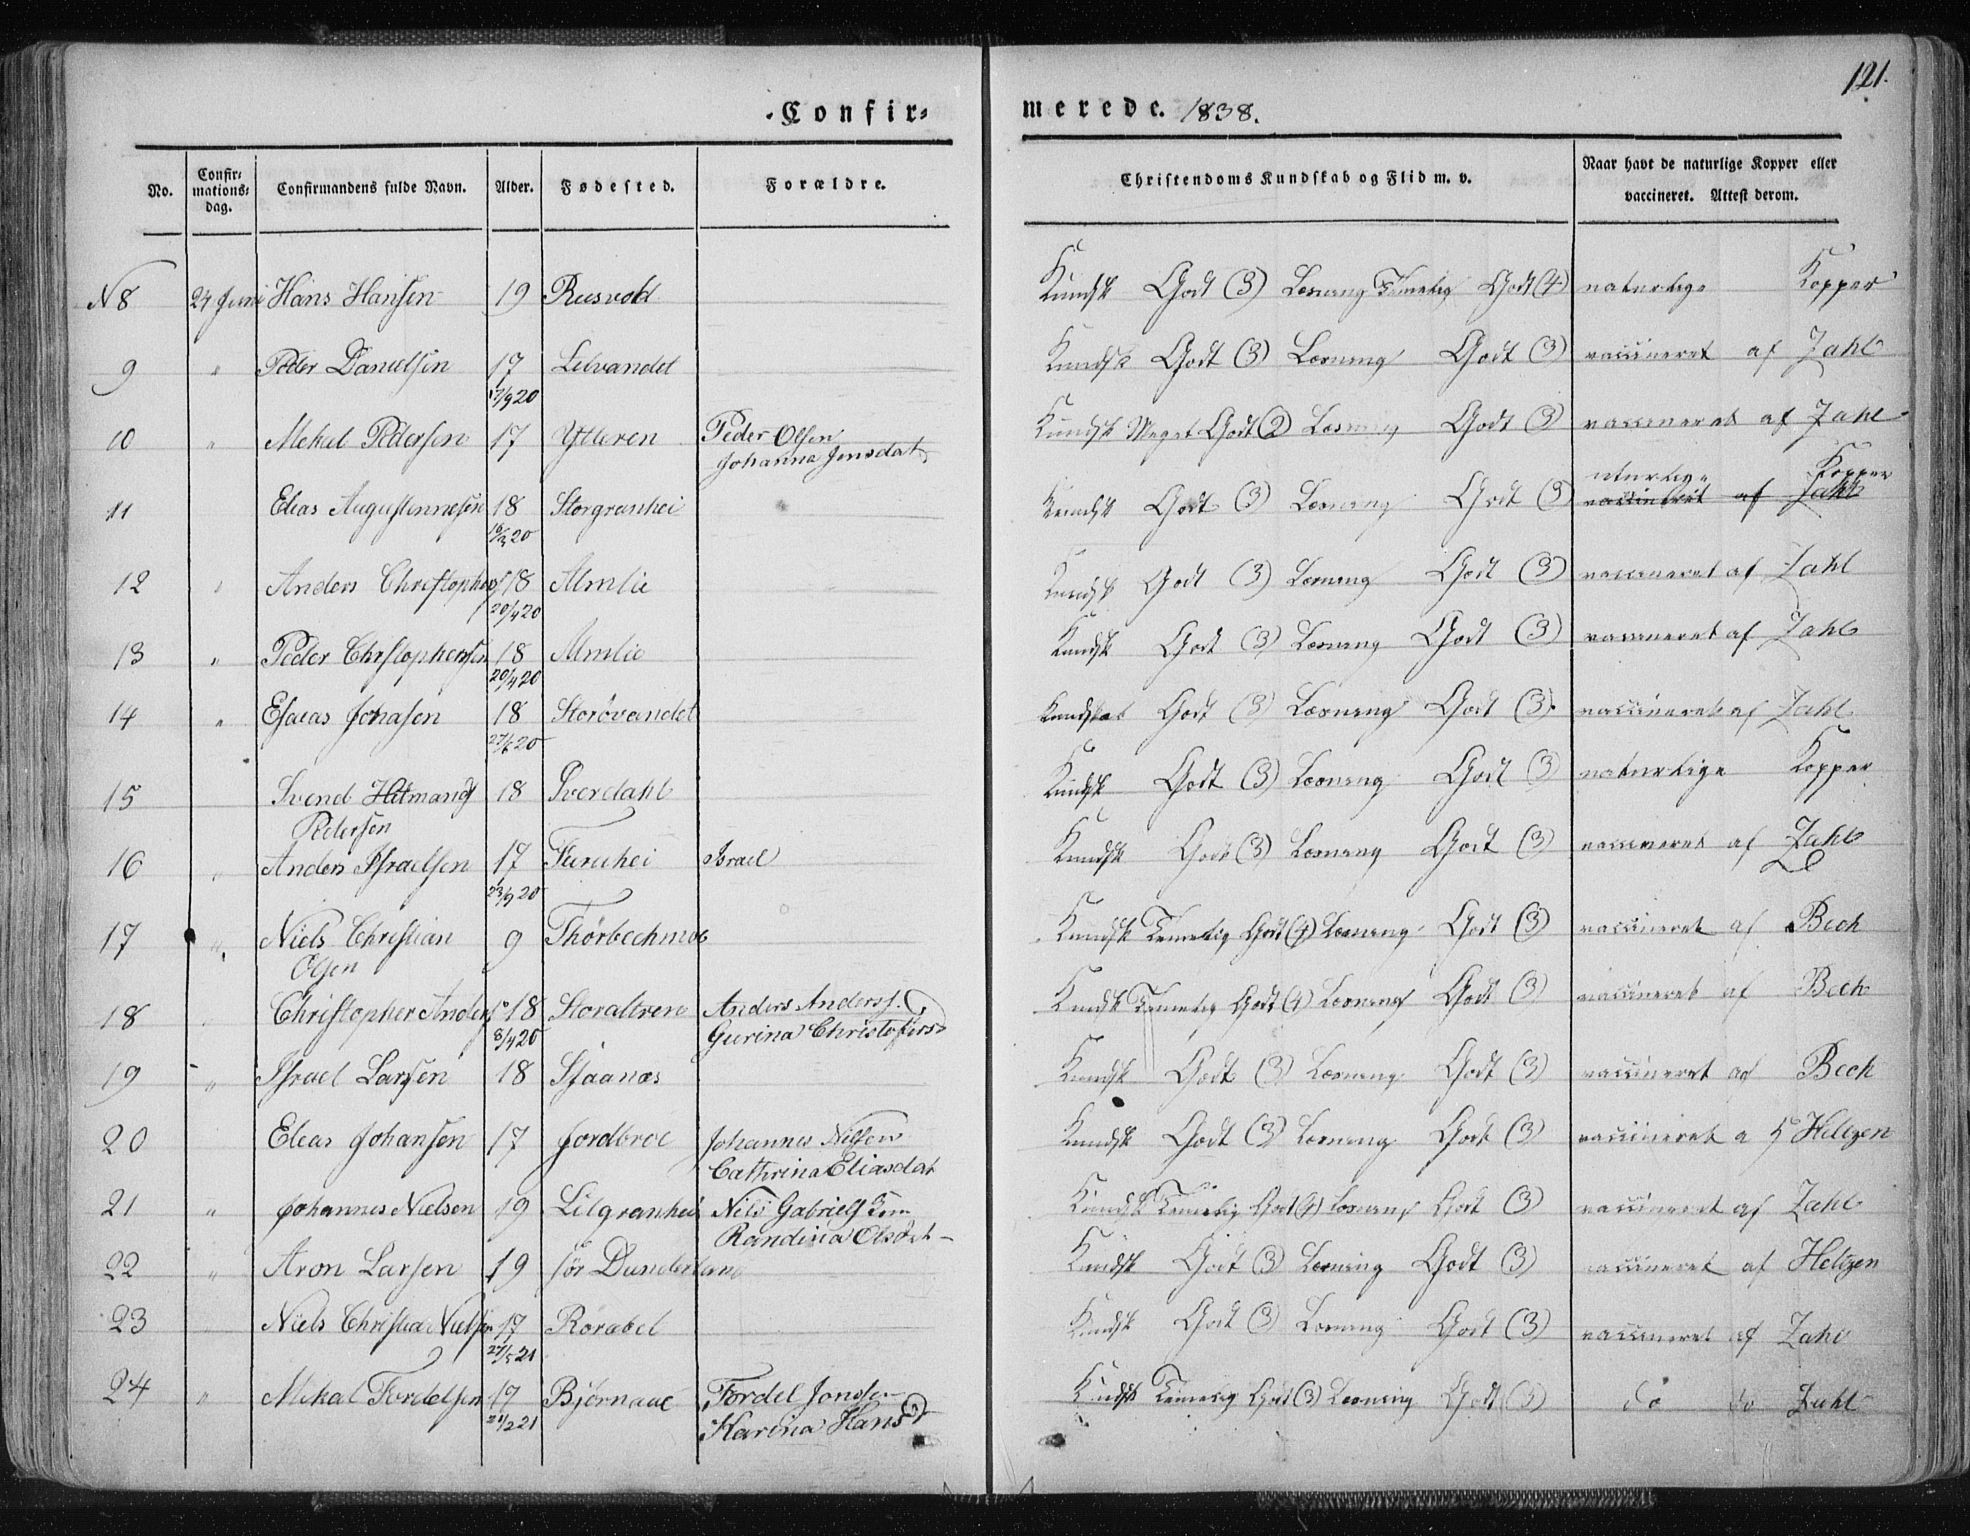 121.
Confir-
merede. 1838.
No.
Confir-
mations-
dag.
Confirmandens fulde Navn.
Alder.
Fødested.
Forældre.
Christendoms Kundskab og Flid m. v.
Naar havt de naturlige Kopper eller
vaccineret. Attest derom.
N 8 24 Juni Hans Hansen 19 Rusvold Kundsk Godt (3) Læsning Temelig Godt (4) naturlige Kopper
9 " Peder Danielsen 17 Lilvandet Kundsk Godt (3) Læsning Godt (3) vaccineret af Zahl
17/9 20
10 " Mekal Pedersen 17 Ytteren Peder Olsen Kundsk Meget Godt (2) Læsning Godt (3) vaccineret af Zahl
Johanna Jensdat
naturlige Kopper
11 Elias Augustinnesen 18 Storgranhei Kundsk Godt (3) Læsning Godt (3) vaccineret af Zahl
16/3 20
12 " Anders Christophers 18 Almlie Kundsk Godt (3) Læsning Godt (3) vaccineret af Zahl
20/4 20
13 " Peder Christophersen 18 Almlie Kundsk Godt (3) Læsning Godt (3) vaccineret af Zahl
20/4 20
14 " Esaias Johasen 18 Storövandet Kundskab Godt (3) Læsning Godt (3) vaccineret af Zahl
27/6 20
15 Svend Hetmand 18 Sverdahl Kundsk Godt (3) Læsning Godt (3) naturlige Kopper
Pedersen
16 " Anders Israelsen 17 Furuhei Israel Kundsk Godt (3) Læsning Godt (3) vaccineret af Zahl
23/9 20
17 " Niels Christian 9 Thörbechmo Kundsk Temelig Godt (4) Læsning Godt (3) vaccineret af Bech
Olsen
18 Christopher Anders 18 Storaltren Anders Anders. Kundsk Temelig Godt (4) Læsning Godt (3) vaccineret af Bech
8/4 20 Gurina Christofers
19 " Israel Larsen 18 Sjaanæs Kundsk Godt (3) Læsning Godt (3) vaccineret af Bech
20 Elias Johansen 17 Jordbroe Johannes Nielsen Kundsk Godt (3) Læsning Godt (3) vaccineret a Heltzen
Cathrina Eliasdat
21 " Johannes Nielsen 19 Lilgranhei Nils Gabriels Kundsk Temelig Godt (4) Læsning Godt (3) vaccineret af Zahl
Randina Olsdat
22 " Aron Larsen 19 sör Dunderland Kundsk Godt (3) Læsning Godt (3) vaccineret af Heltzen
23 Niels Christia Nielsen 17 Rorabel Kundsk Godt (3) Læsning Godt (3) vaccineret af Zahl
27/5 21
24 " Mikal Fordelsen 17 Björnaae Fordel Jonsen Kundsk Temelig Godt (3) Læsning Godt (3) do do Zahl
21/2 21 Karina Hansd